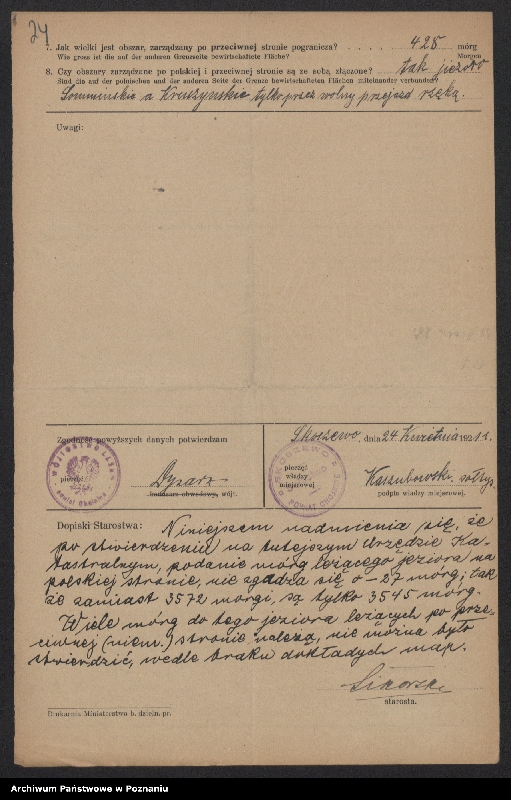 24
7. Jak wielki jest obszar, zarządzany po przeciwnej stronie pogranicza? 428 mórg
Wie gross ist die auf der anderen Grenzseite bewirtschaftete Fläche? Morgen
8. Czy obszary zarządzane po polskiej i przeciwnej stronie są ze sobą złączone? tak jezioro
Sind die auf der polnischen und der anderen Seite der Grenze bewirtschafteten Flächen miteinander verbunden?
Somminskie a Kruszyńskie tylko przez wolny przejazd rzéką.
Uwagi:
Zgodność powyższych danych potwierdzam
Skoszewo, dnia 24 Kwietnia 1921 r.
pieczęć
Dysarz
komisarz obwodowy, wójt.
pieczęć
władzy
miejscowej
Kaszubowski sołtys
podpis władzy miejscowej.
Dopiski Starostwa: Niniejszem nadmienia się, że
po stwierdzeniu na tutejszym Urzędzie Ka-
tastralnym, podanie mórg leżącego jeziora na
polskiej stronie, nie zgadza się o - 27 mórg; tak
że zamiast 3572 morgi, są tylko 3545 mórg.
Wiele mórg do tego jeziora leżących po prze-
ciwnej (niem.) stronie należą, nie można było
stwierdzić, wedle braku dokładych map.
Sikorski
starosta.
Drukarnia Ministerstwa b. dzieln. pr.
Archiwum Państwowe w Poznaniu